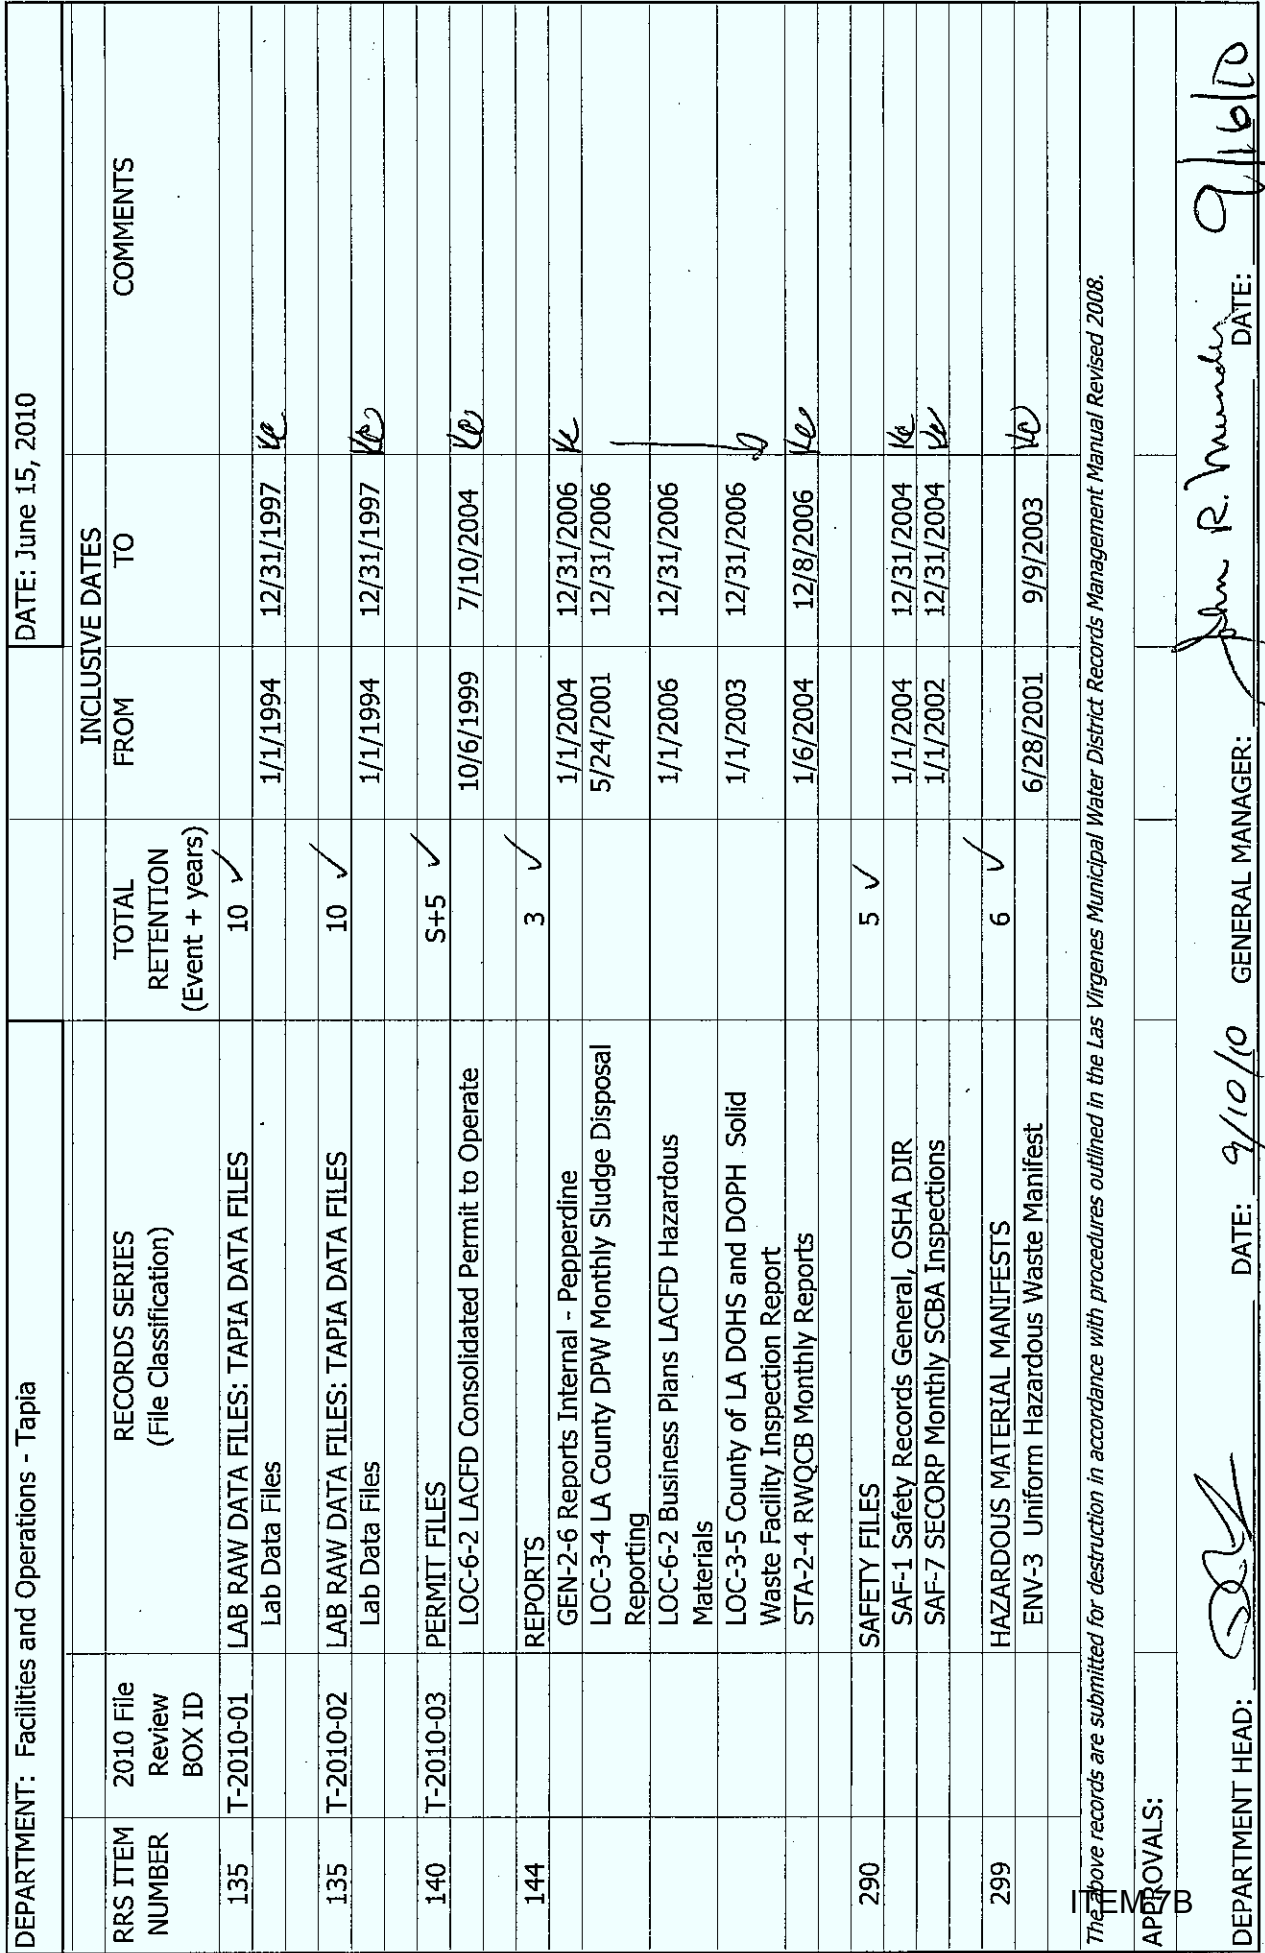 DEPARTMENT: Facilities and Operations - Tapia DATE: June 15, 2010
INCLUSIVE DATES
RRS ITEM 2010 File RECORDS SERIES TOTAL FROM TO COMMENTS
NUMBER Review (File Classification) RETENTION
BOX ID (Event + years)
135 T-2010-01 LAB RAW DATA FILES: TAPIA DATA FILES 10 ✓
Lab Data Files 1/1/1994 12/31/1997 Ke
135 T-2010-02 LAB RAW DATA FILES: TAPIA DATA FILES 10 ✓
Lab Data Files 1/1/1994 12/31/1997 Ke
140 T-2010-03 PERMIT FILES S+5 ✓
LOC-6-2 LACFD Consolidated Permit to Operate 10/6/1999 7/10/2004 Ke
144 REPORTS 3 ✓
GEN-2-6 Reports Internal - Pepperdine 1/1/2004 12/31/2006 Ke
LOC-3-4 LA County DPW Monthly Sludge Disposal 5/24/2001 12/31/2006
Reporting
LOC-6-2 Business Plans LACFD Hazardous 1/1/2006 12/31/2006
Materials
LOC-3-5 County of LA DOHS and DOPH Solid 1/1/2003 12/31/2006
Waste Facility Inspection Report
STA-2-4 RWQCB Monthly Reports 1/6/2004 12/8/2006 Ke
290 SAFETY FILES 5 ✓
SAF-1 Safety Records General, OSHA DIR 1/1/2004 12/31/2004 Ke
SAF-7 SECORP Monthly SCBA Inspections 1/1/2002 12/31/2004 Ke
299 HAZARDOUS MATERIAL MANIFESTS 6 ✓
ENV-3 Uniform Hazardous Waste Manifest 6/28/2001 9/9/2003 Ke
The above records are submitted for destruction in accordance with procedures outlined in the Las Virgenes Municipal Water District Records Management Manual Revised 2008.
APPROVALS:
DEPARTMENT HEAD: DATE: 9/10/10 GENERAL MANAGER: John R. Mundy DATE: 9/16/10
ITEM 7B